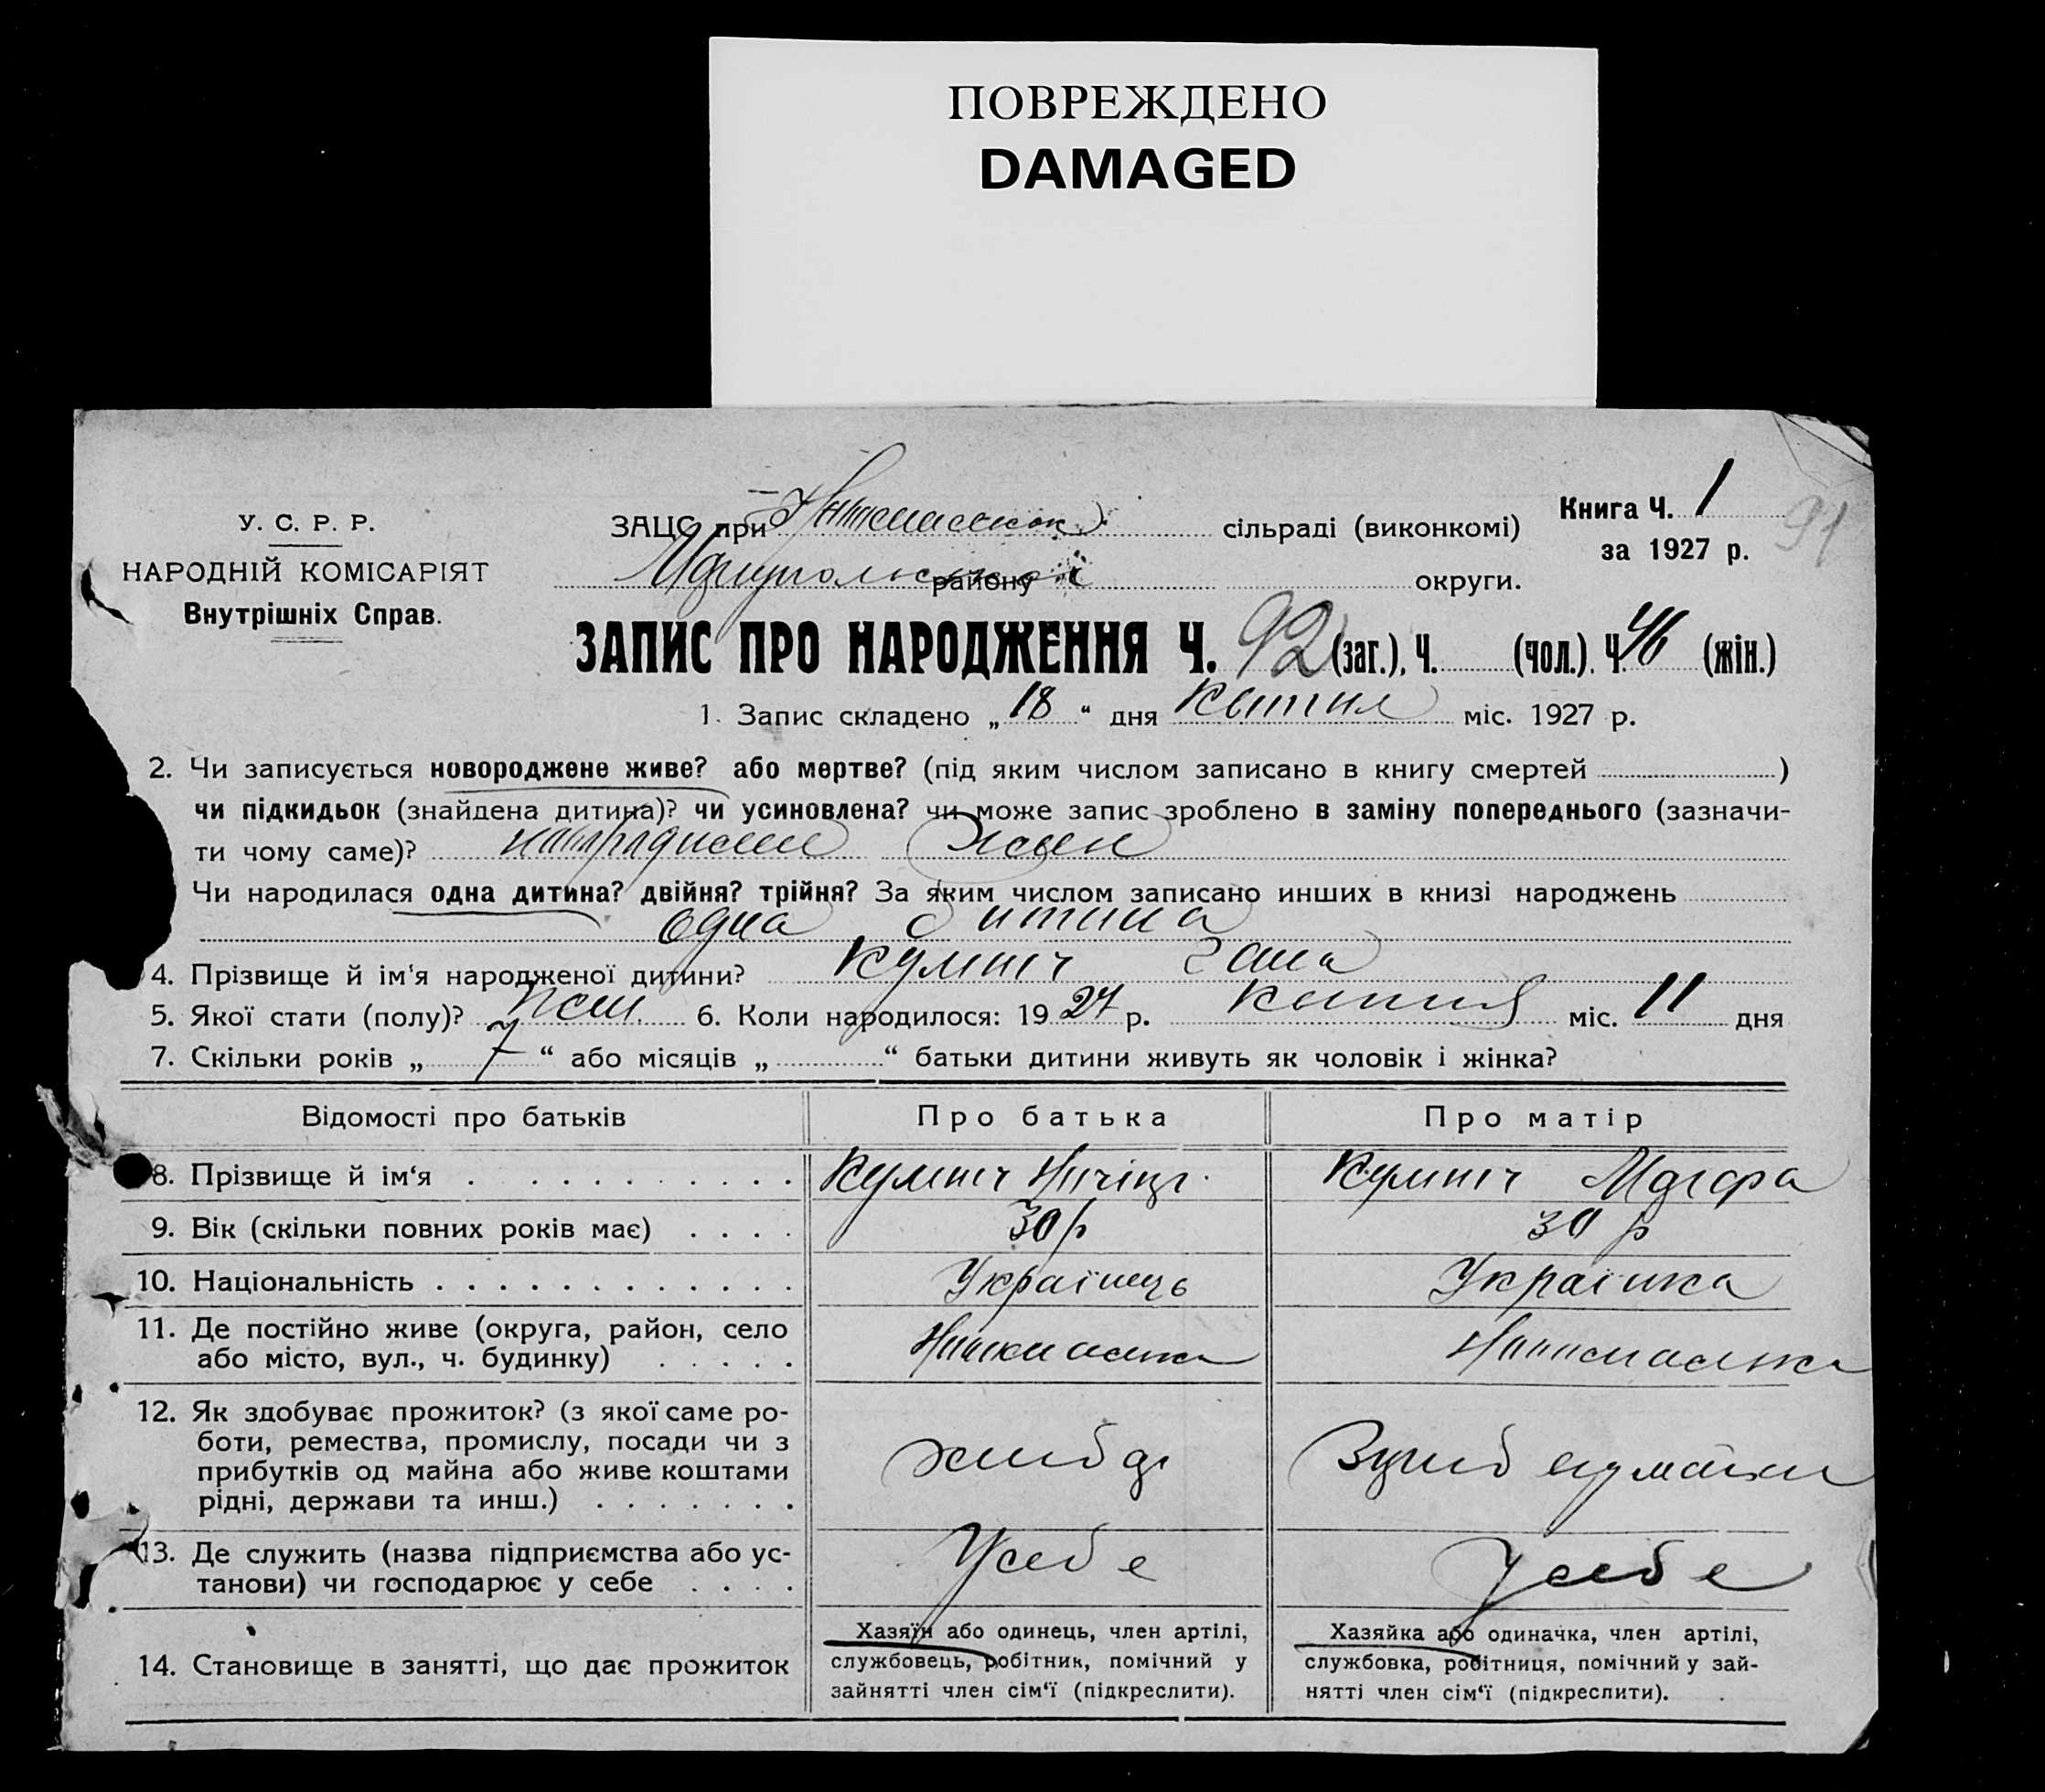 ПОВРЕЖДЕНО
DAMAGED
У. С. Р. Р.
НАРОДНІЙ КОМІСАРІЯТ
Внутрішніх Справ.
ЗАЦС при сільраді (виконкомі)
району округи.
Книга Ч. 1
за 1927 р.
91
ЗАПИС ПРО НАРОДЖЕННЯ Ч. 92 (заг.), Ч. (чол.). Ч. 46 (жін.)
1. Запис складено „ 18 “ дня Квітня міс. 1927 р.
2. Чи записується новороджене живе? або мертве? (під яким числом записано в книгу смертей )
чи підкидьок (знайдена дитина)? чи усиновлена? чи може запис зроблено в заміну попереднього (зазначи-
ти чому саме)?
Чи народилася одна дитина? двійня? трійня? За яким числом записано инших в книзі народжень
одна дитина
4. Прізвище й ім'я народженої дитини?
5. Якої стати (полу)? 6. Коли народилося: 19 27 р. Квітня міс. 11 дня
7. Скільки років „ 7 “ або місяців „ “ батьки дитини живуть як чоловік і жінка?
Відомості про батьків Про батька Про матір
8. Прізвище й ім‘я
9. Вік (скільки повних років має) 30 р 30 р
10. Національність Українець Українка
11. Де постійно живе (округа, район, село
або місто, вул., ч. будинку)
12. Як здобуває прожиток? (з якої саме ро-
боти, ремества, промислу, посади чи з
прибутків од майна або живе коштами
рідні, держави та инш.)
13. Де служить (назва підприємства або ус-
танови) чи господарює у себе
У себе У себе
14. Становище в занятті, що дає прожиток
Хазяїн або одинець, член артілі,
службовець, робітник, помічний у
зайнятті член сім‘ї (підкреслити).
Хазяйка або одиначка, член артілі,
службовка, робітниця, помічний у зай-
нятті член сім‘ї (підкреслити).